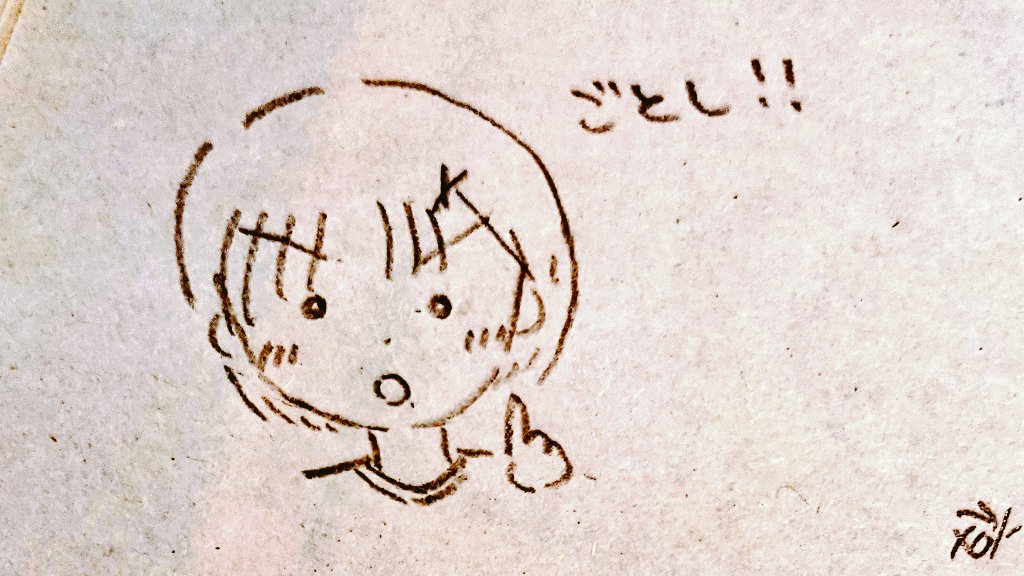 ごとし!!